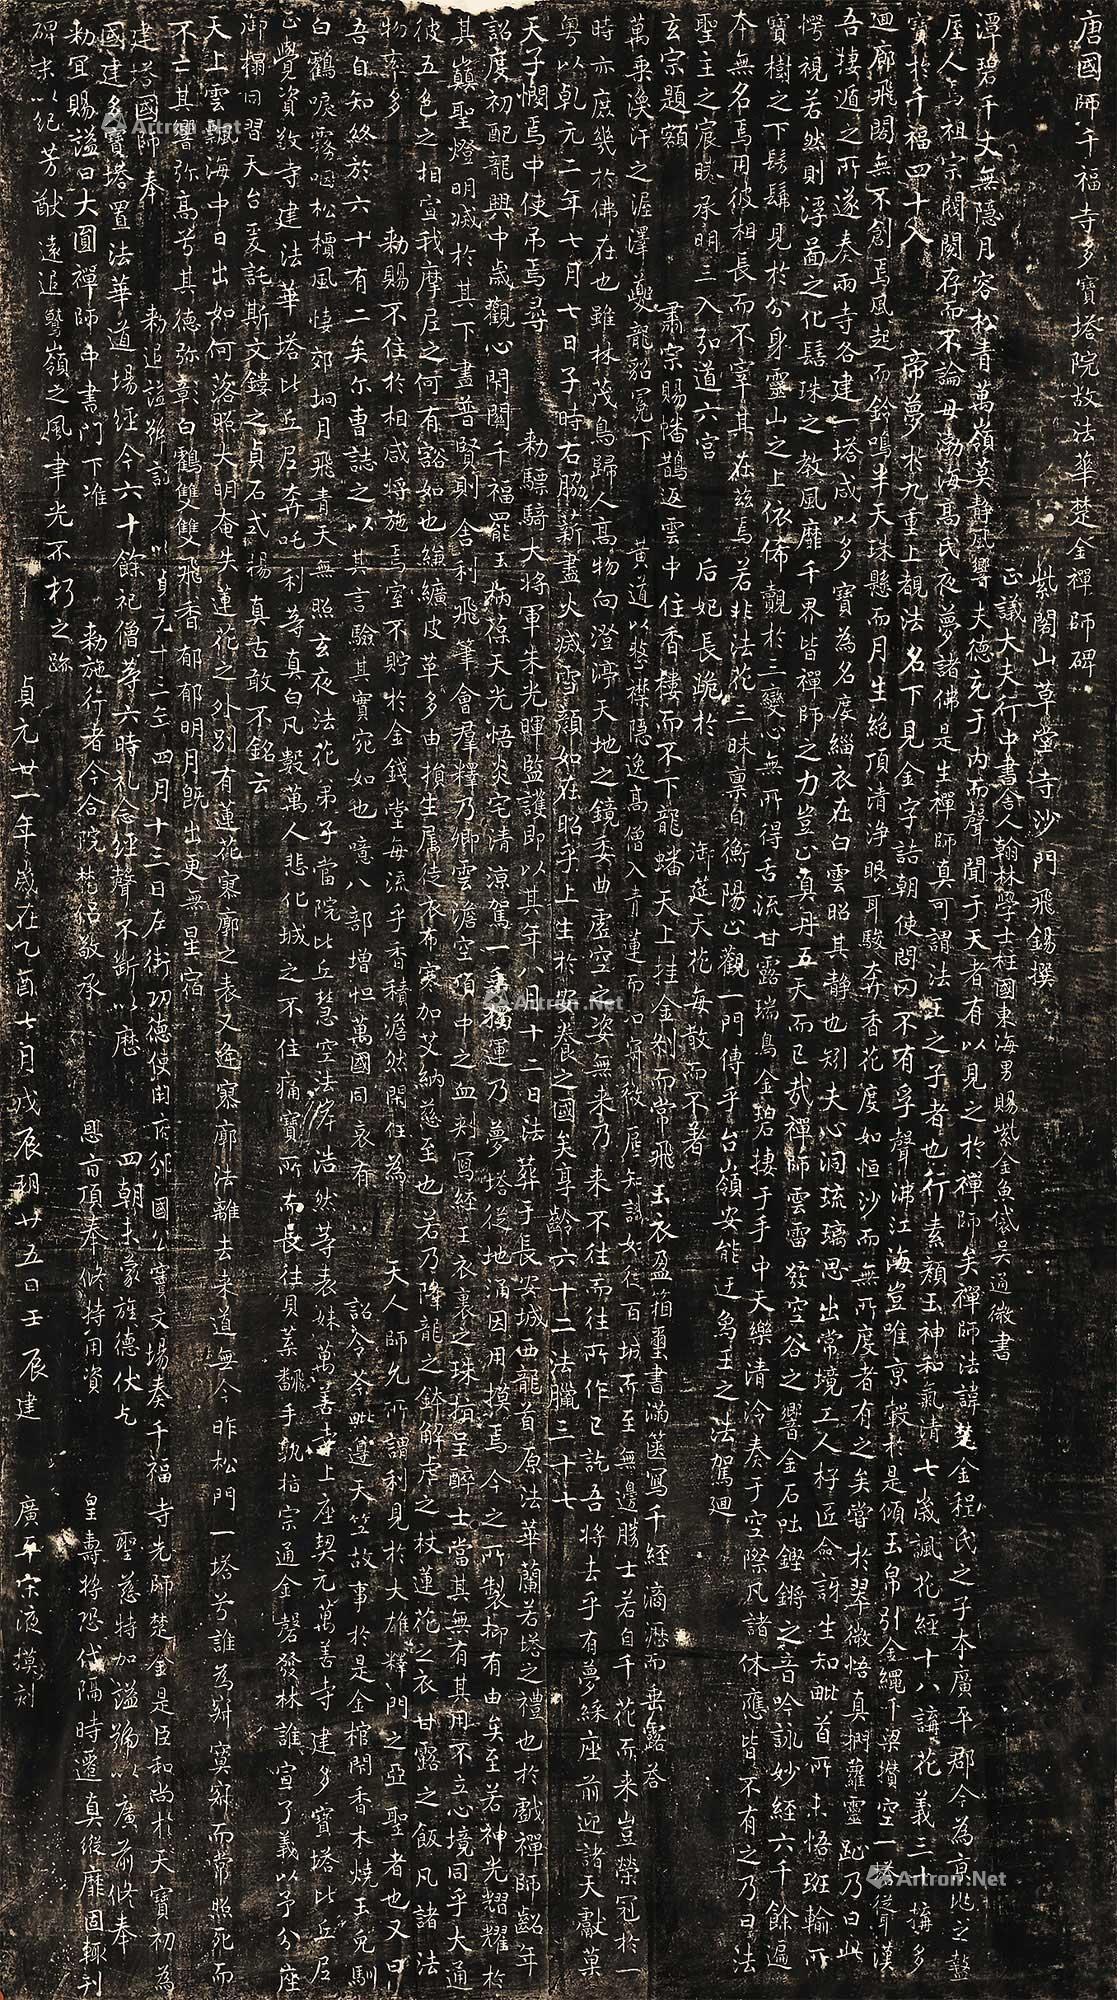 唐國師千福寺多寶塔院故法華楚金禪師碑
紫閣山草堂寺沙門飛錫撰
正議大夫行中書舍人翰林學士柱國東海男賜紫金魚袋吳通微書
潭碧千丈無隱月容松青萬嶺莫靜風響夫德充于內而聲聞于天者有以見之於禪師矣禪師法諱楚金程氏之子本廣平郡今為京兆之盩
厔人焉祖宗閥閱存而不論母渤海高氏夜夢諸佛是生禪師真可謂法王之子者也行素顏玉神和氣清七歲諷花經十八講花義三十搆多
寶於千福四十入 帝夢於九重上覩法名下見金字詰朝使問罔不有孚聲沸江海豈唯京轂於是傾玉帛引金繩千梁攢空一塔聳漢
迴廊飛閣無不創焉風起而鈴鳴半天珠懸而月生絕頂清淨眼耳駿奔香花度如恒沙而無所度者有之矣嘗於翠微悟真捫蘿靈趾乃曰此
吾棲遁之所遂奏兩寺各建一塔咸以多寶為名度緇衣在白雲昭其靜也矧夫心洞琉璃思出常境工人杍匠僉訝生知毗首所未悟班輸所
愕視若然則浮啚之化髻珠之教風靡千界皆禪師之力豈止真丹五天而已哉禪師雲雷發空谷之響金石吐鏗鏘之音吟詠妙經六千餘遍
寶樹之下髣髴見於分身靈山之上依俙覿於三變心無所得舌流甘露瑞鳥金碧棲于手中天樂清泠奏于空際凡諸休應皆不有之乃曰法
本無名焉用彼相長而不宰其在茲焉若非法花三昧稟自衡陽止觀一門傳乎台嶺安能迂萬王之法駕迴
聖主之宸眷承明三入弘道六宮 后妃長跪於 御筵天花每散而不著
玄宗題額 肅宗賜幡鵲返雲中住香樓而不下龍蟠天上挂金剎而常飛 玉衣盈箱璽書滿篋寫千經滴瀝而垂露答
萬乘渙汗之渥澤夔龍貂冕下 黃道以整襟隱逸高僧入青蓮而
時亦庶幾於佛在也雖林茂鳥歸人高物向澄渟天地之鏡委曲虛空之姿無來乃來不往而往所作已訖吾將去乎有夢綵座前迎諸天獻菓
粵以乾元二年七月七日子時右脇薪盡火滅雪顏如在昭乎上生於安養之國矣享齡六十二法臘三十七
天子憫焉中使弔焉尋 勑驃騎大將軍朱光暉監護即以其年八月十二日法葬于長安城西龍首原法華蘭若塔之禮也於戲禪師齠年
詔度初配龍興中歲觀心閉關千福罷玉柄葆天光悟炎宅清涼駕一乘獨運乃夢塔從地涌因用摸焉今之所製抑有由矣至若神光耀耀於
其巔聖燈明滅於其下盡普賢則舍利飛筆會群釋乃卿雲澹空頂中之血刺寫經王衣裹之珠指呈醉士當其無有其用不立心境同乎大通
彼五色之相宣我摩尼之何有豁如也縑纊皮革多由損生屬徒衣布寒加艾納慈至也若乃降龍之鉢解虎之杖蓮花之衣甘露之飯凡諸法
物率多 勑賜不住於相咸將施焉室不貯於金錢堂每流乎香積澹然閑任為 天人師允所謂利見於大雄釋門之亞聖者也又曰
吾自知終於六十有二矣尔曹誌之以其言驗其實宛如也噫八部增怛萬國同哀有 詔令荼毗遵天竺故事於是金棺閉香木燒玉兔馴
白鶴唳霧咽松檟風悽郊坰月飛青天無照玄夜法花弟子當院比丘慧空法岸浩然等表妹萬善寺上座契元萬善寺建多寶塔比丘尼
正覺資敬寺建法華塔比丘尼奔吒利等真白凡數萬人悲化城之不住痛寶所而長往貝葉翻手執指宗通金磬發林誰宣了義以予分座
御榻同習天台爰託斯文鏤之貞石式揚真古敢不銘云
天上雲飄海中日出如何落照大明奄失蓮花之外別有蓮花寥廓之表又逾寥廓法離去來道無今昨松門一塔兮誰為鄰寞寂而常照死而
不亡其響弥高兮其德弥彰白鶴雙雙飛香郁郁明月既出更無星宿
建塔國師奉 勑追謚號記 以貞元十三年四月十三日左街功德使開府邠國公竇文場奏千福寺先師楚金是臣和尚於天寶初為
國建多寶塔置法華道場經今六十餘祀僧等六時礼念經聲不斷以歷 四朝未蒙旌德伏乞 聖慈特加謚號以廣前修奉
勑宜賜謚曰大圓禪師中書門下准 勑施行者今合院梵侶敬承 恩旨頂奉修持用資 皇壽將恐代隔時遷真縱靡固輒刊
碑末以紀芳猷遠追鷲嶺之風聿光不朽之跡
貞元廿一年歲在乙酉七月戊辰朔廿五日壬辰建 廣平宋液摸刻
Artron.Net
Artron.Net
Artron.Net